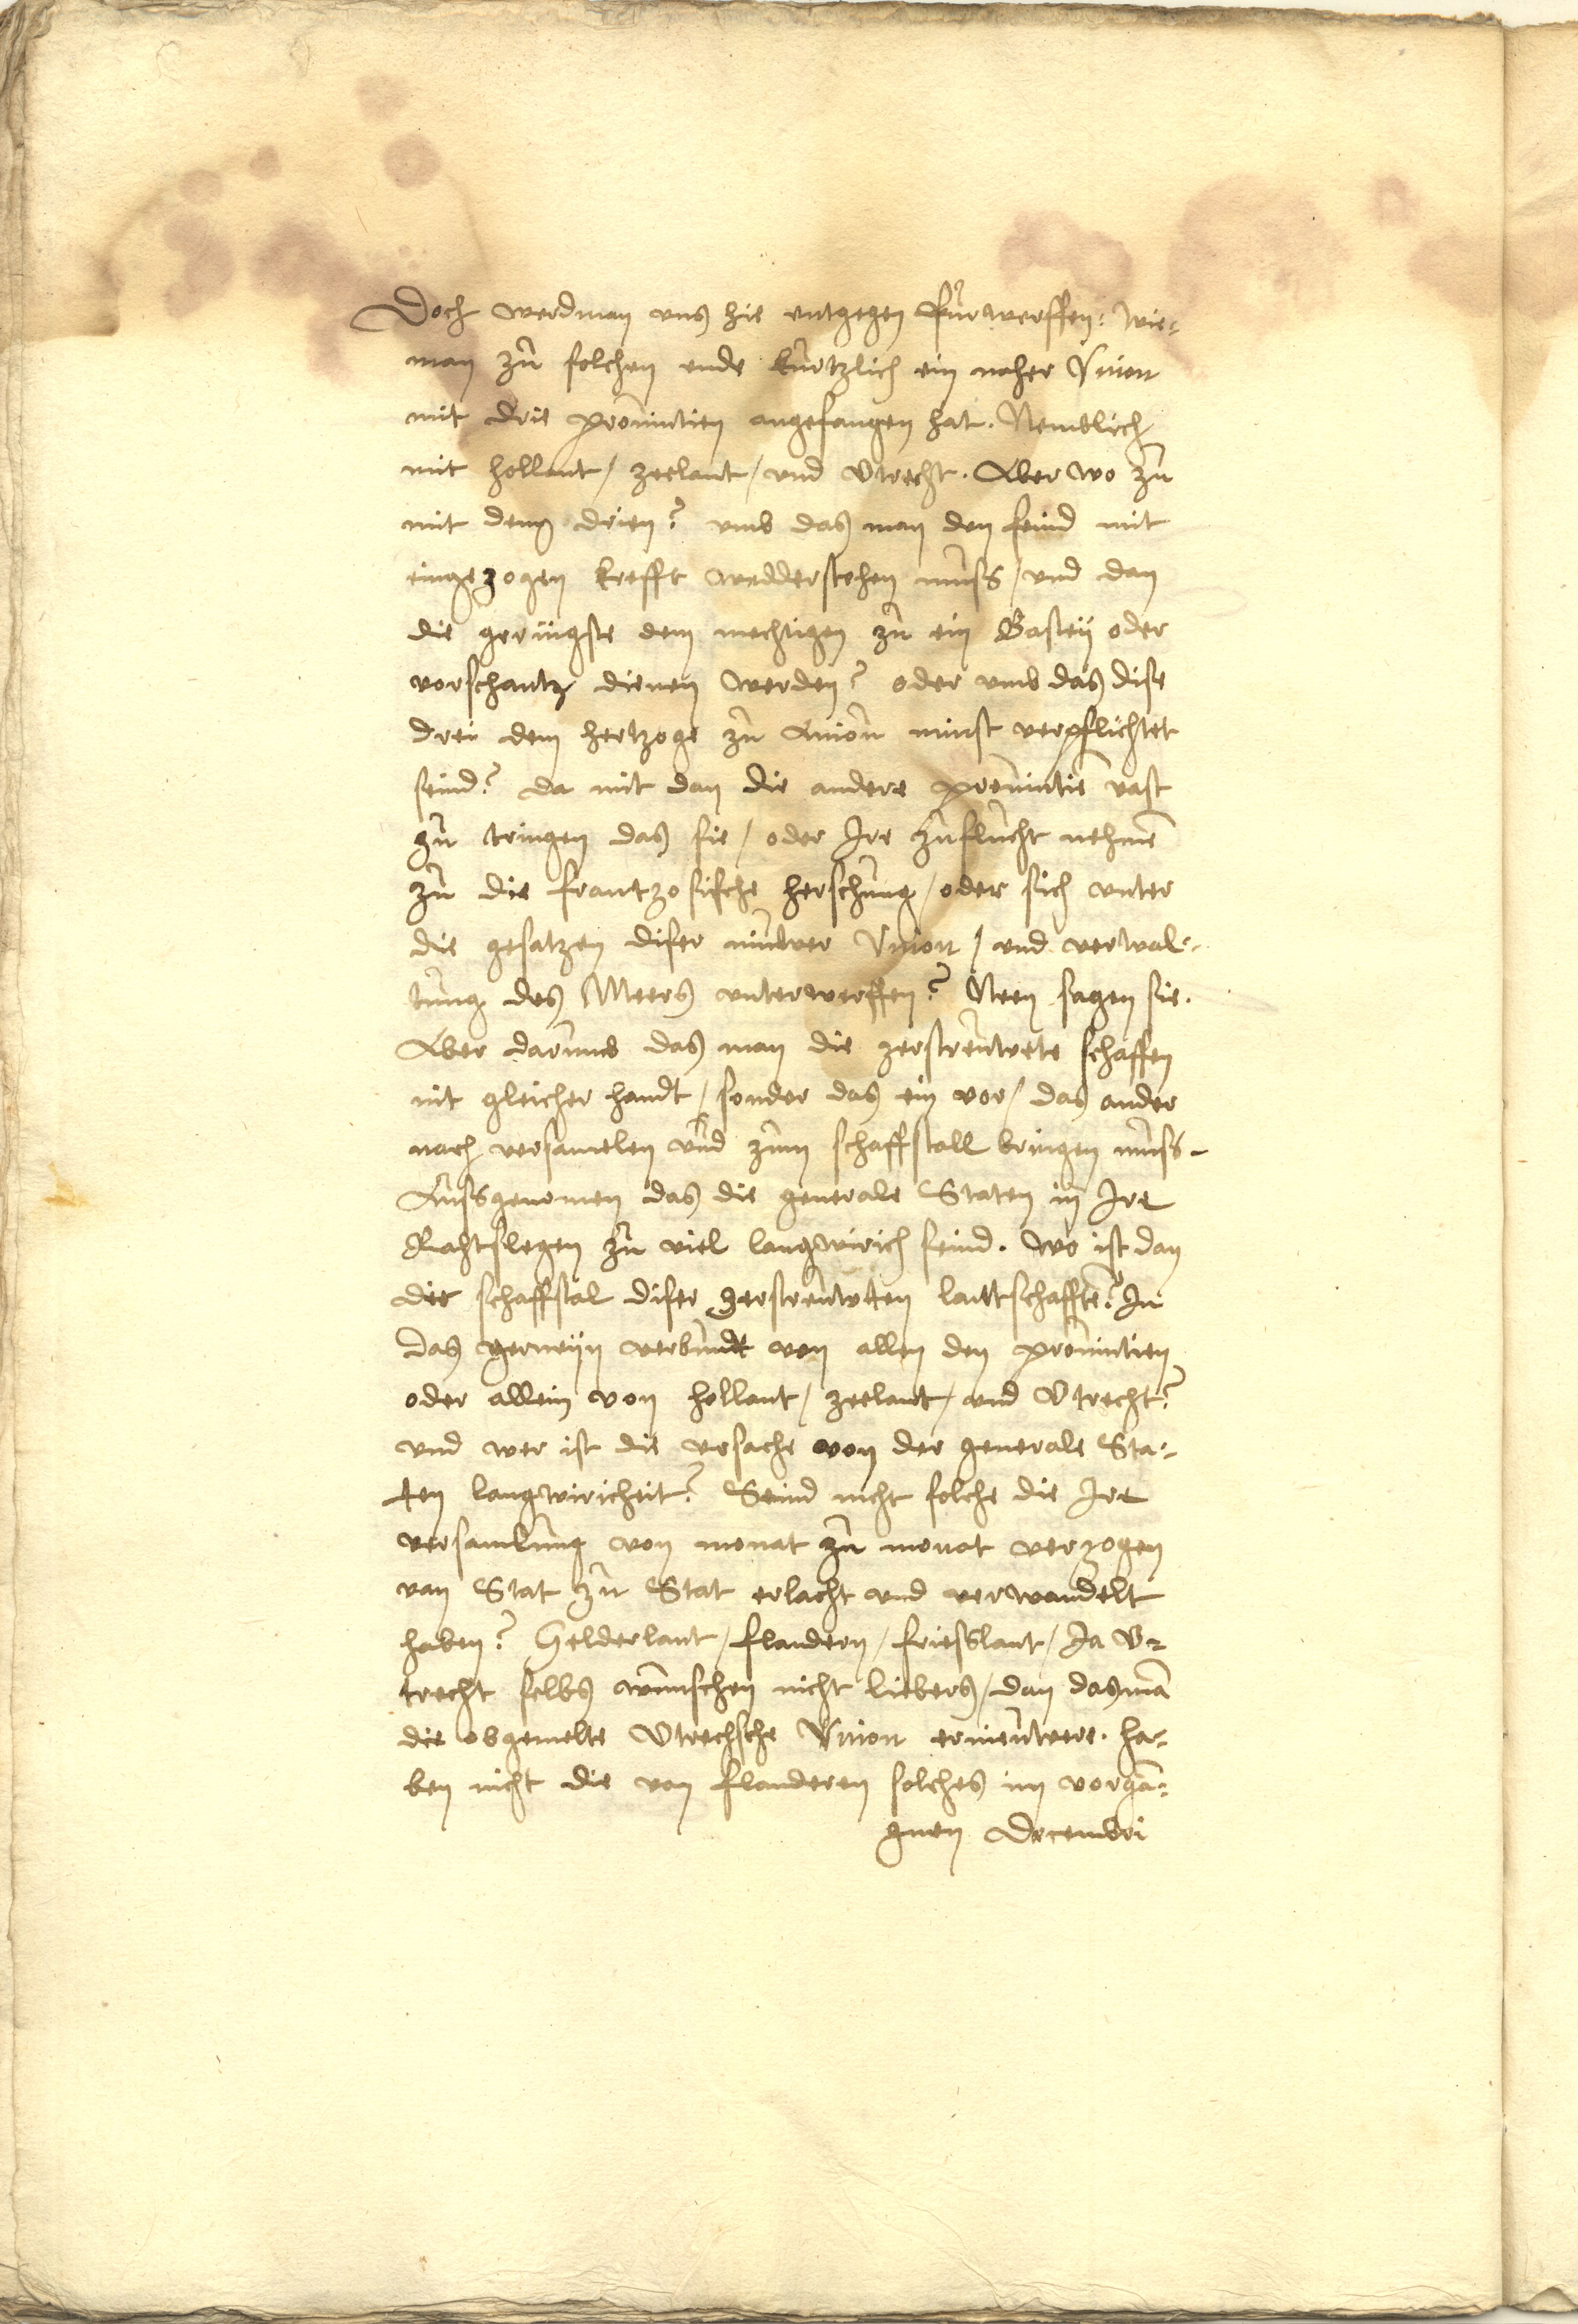 Doch werdman vns hie entgegen fürwerffen: wie=
man zu solchen ende kurtzlich ein naher Vnion
mit drie prouintien angefangen hat. Nemblich
mit hollant / zeelant / vnd Vtrecht. Aber wo zu
mit deng drien? vmb das man den feind mit
eingezogen krefft wedderstehen muss / vnd dan
die geringste dem mechtigen zu ein Bastey oder
vorschantz dienen werden? oder vmb das dise
drei dem hertzoge zu Aniou minst verpflichtet
seind? da mit dan die andere prouintiē vast
zu tringen das sie / oder Ire zuflucht nehmē
zu die frantzosische herschung / oder sich vnter
die gesatzen diser niuwer Vnion / vnd verwal=
tung des Meers vnterwerffen? Neen sagen sie.
Aber darumb das man die zerstreuwete schaffen
nit gleicher handt / sonder das ein vor / das ander
nach versamelen vnd zum schaffstall bringen muss.
Aussgenomen das die generale Staten in Ire
Rahtslegen zu viel langwirich seind. Wo ist dan
die schaffstal diser zerstreuwten lantschafftē? In
das gemeijn verbundt von allen den prouintien
oder allein von hollant / zeelant / vnd Vtrecht?
vnd wer ist die vrsache von der generale Sta=
ten langwiricheit? Seind nicht solche die Ire
versamlung von monat zu monat verzogen
van Stat zu Stat erlacht vnd verwandelt
haben? Gelderlant / flandern / friesslant / Ja V=
trecht selbs wunschen nicht liebers / dan dasmā
die obgemelte Vtrechsche Vnion ernieuwere. ha=
ben nicht die van flanderen solches im vorgā=
gnen Decembri